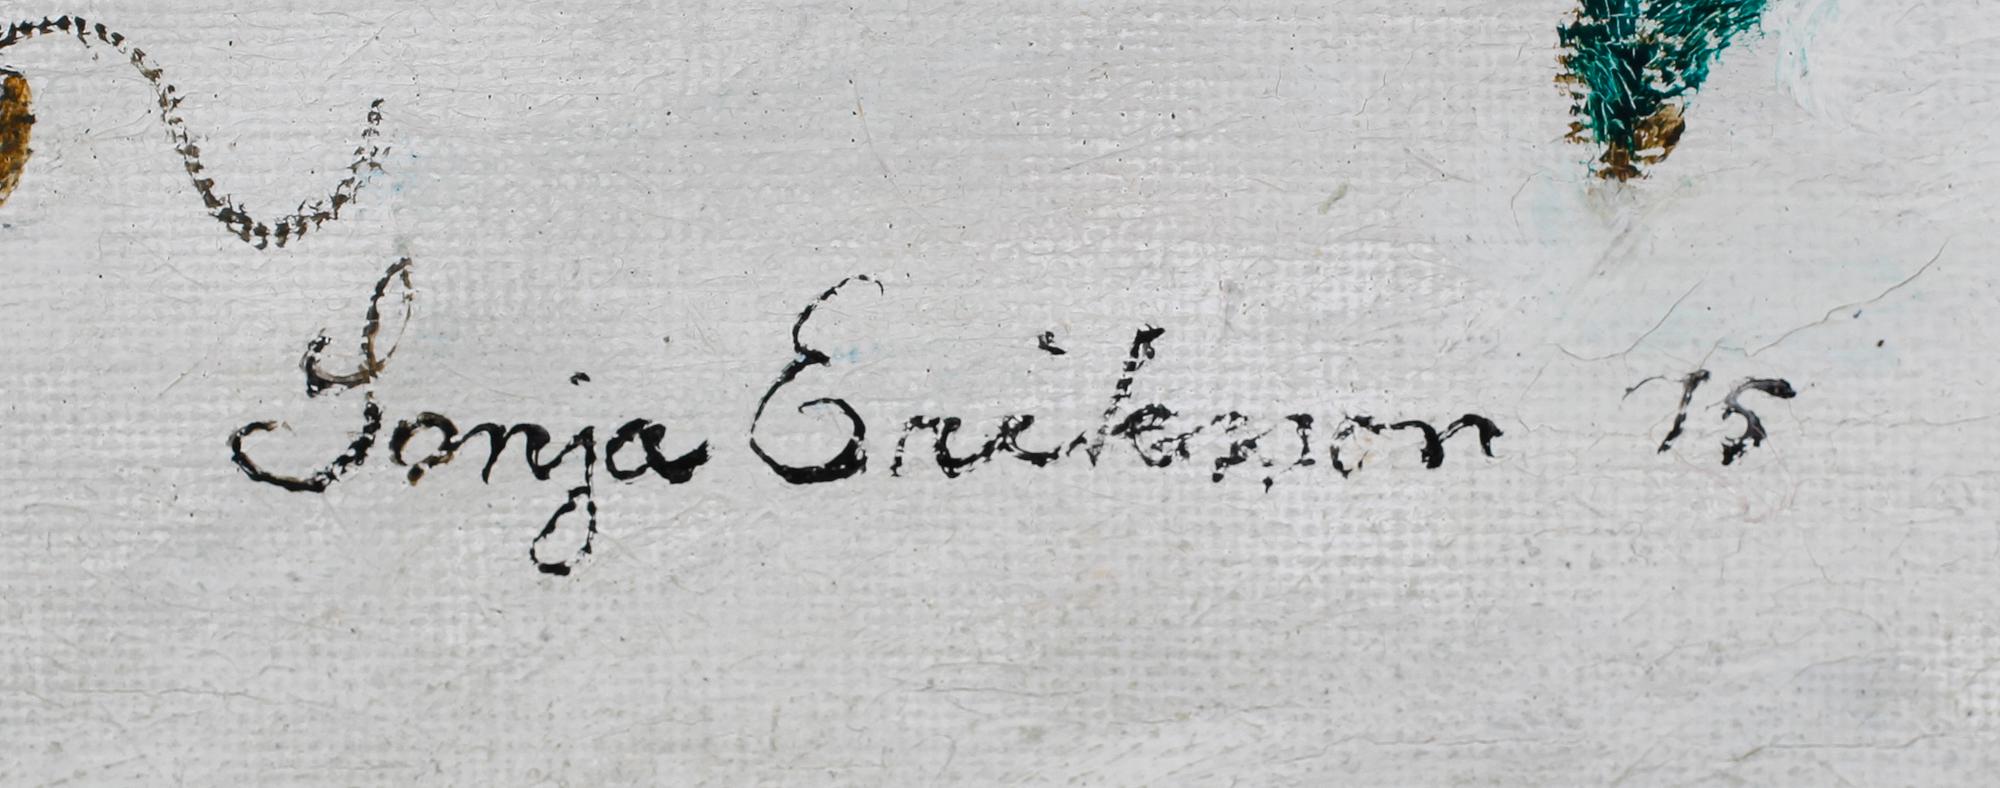 Sonja Eriksson 75